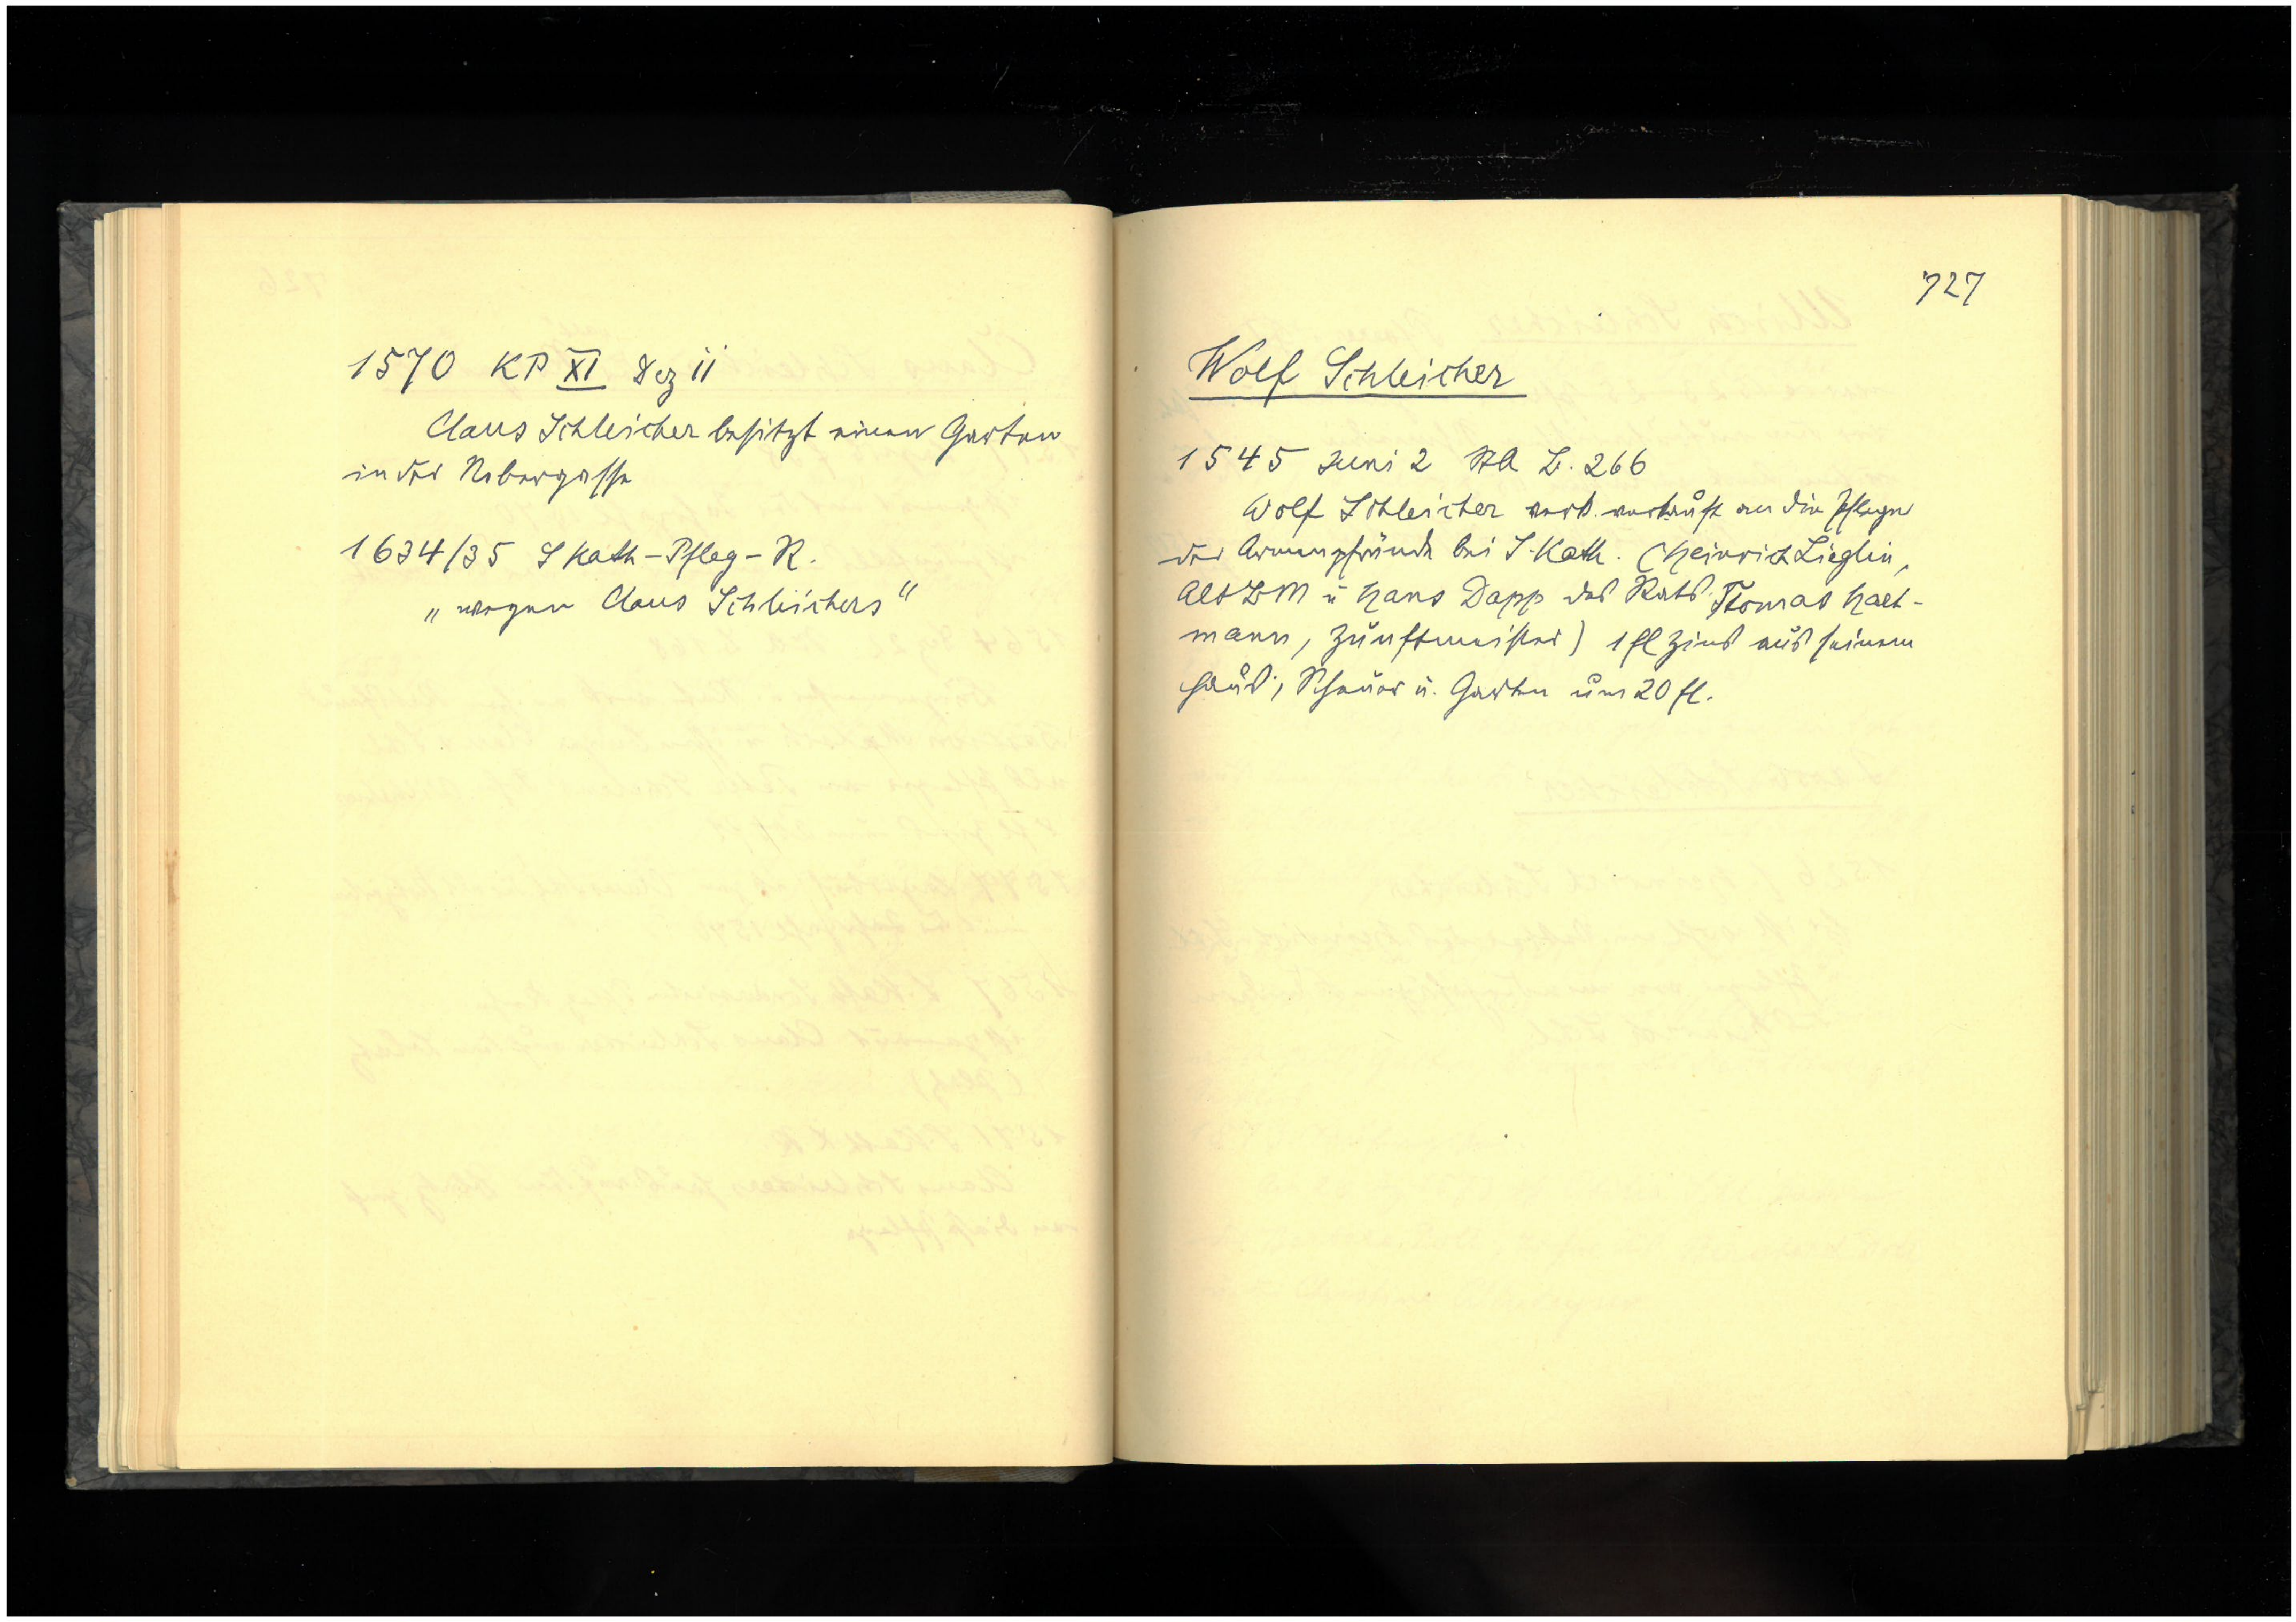 1570 KP XI Dez 11
Claus Schleicher besitzt einen Garten
in der Nebergasse
1634/35 S Kath-Pfleg-R.
„wegen Claus Schleichers“
727
Wolf Schleicher
1545 Juni 2 StA L. 266
Wolf Schleicher verk. verkauft an die Pfleger
der Armenpfründe bei S. Kath. (Heinrich Lieglin,
Alt ZM u Hans Dapp des Rats Thomas Hart-
mann, Zunftmeister) 1 fl Zins aus seinem
Haus, Scheuer u. Garten um 20 fl.